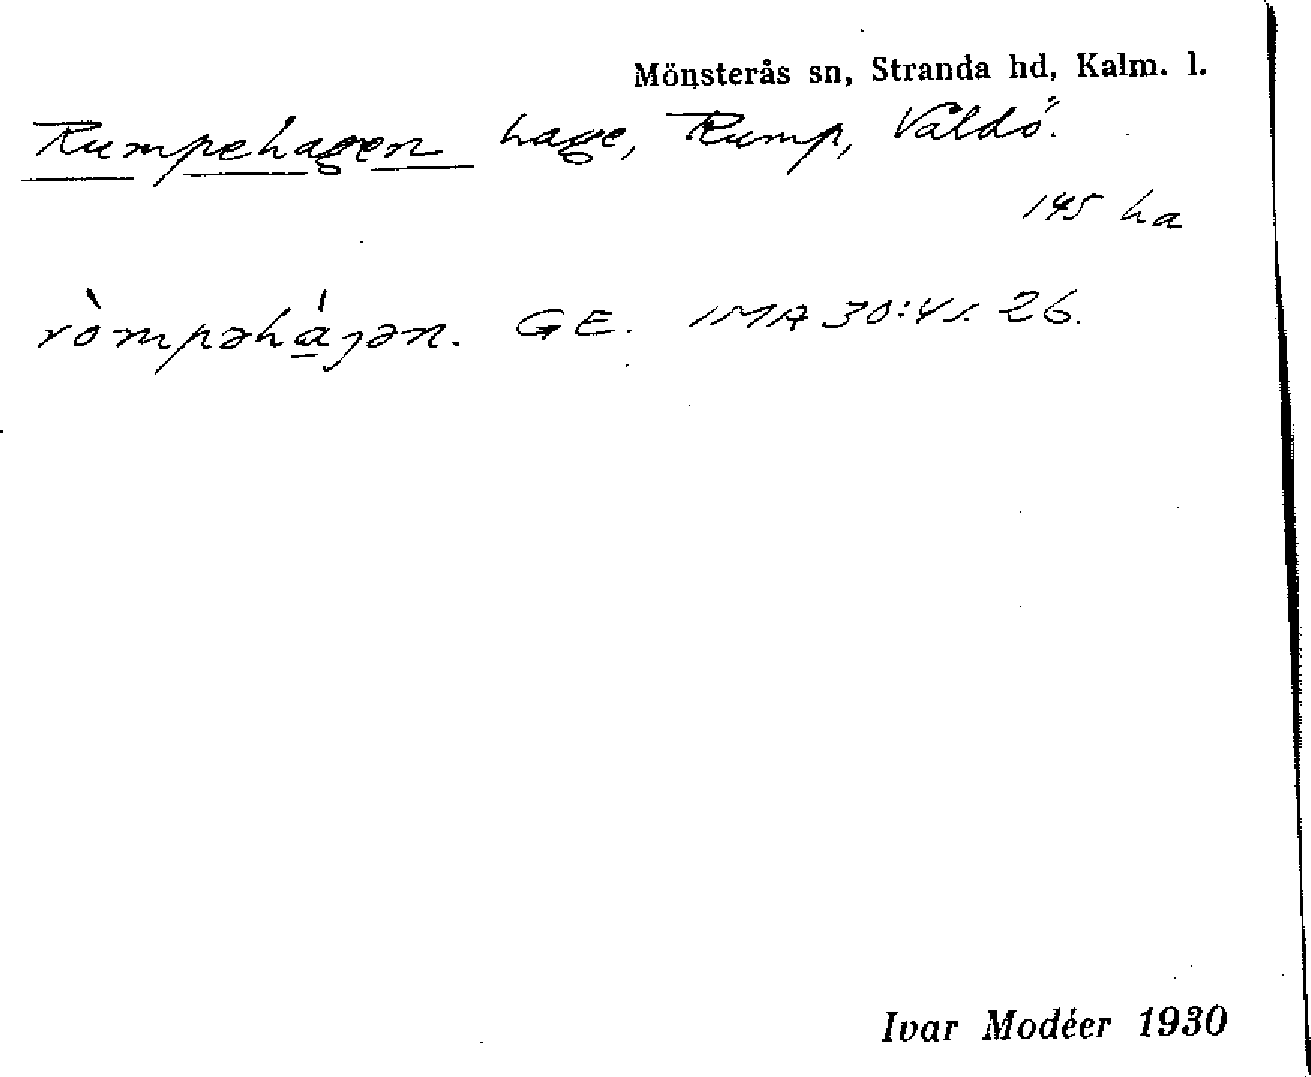 Mönsterås sn, Stranda hd, Kalm. l.
Rumpehagen hage, Rump, Valdö.
145 ha
ròmpəhágən. GE. IMA 30:4 s. 26.
Ivar Modéer 1930